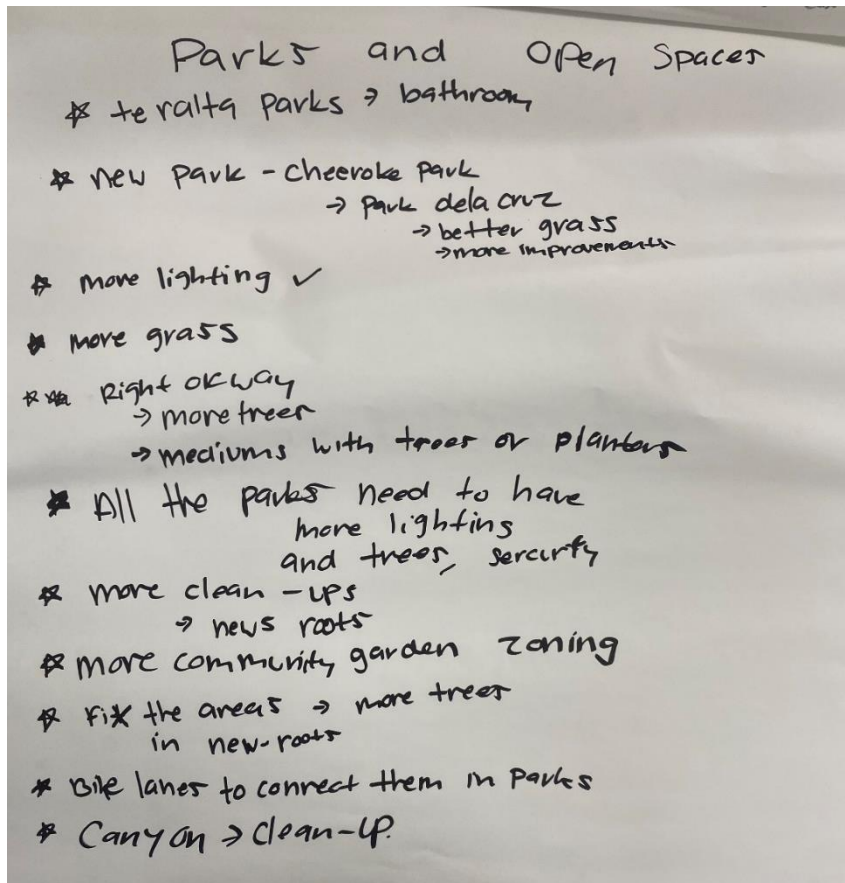 Parks and Open Spaces
☆ teralta parks → bathroom
☆ new park - cheeroke park
→ park dela cruz
→ better grass
→ more improvements
☆ more lighting ✓
☆ more grass
☆ Right of way
→ more trees
→ mediums with trees or planters
☆ All the parks need to have
more lighting
and trees, sercurty
☆ more clean-ups
→ news roots
☆ more community garden zoning
☆ Fix the areas → more trees
in new-roots
☆ Bike lanes to connect them in parks
☆ Canyon → clean-up.